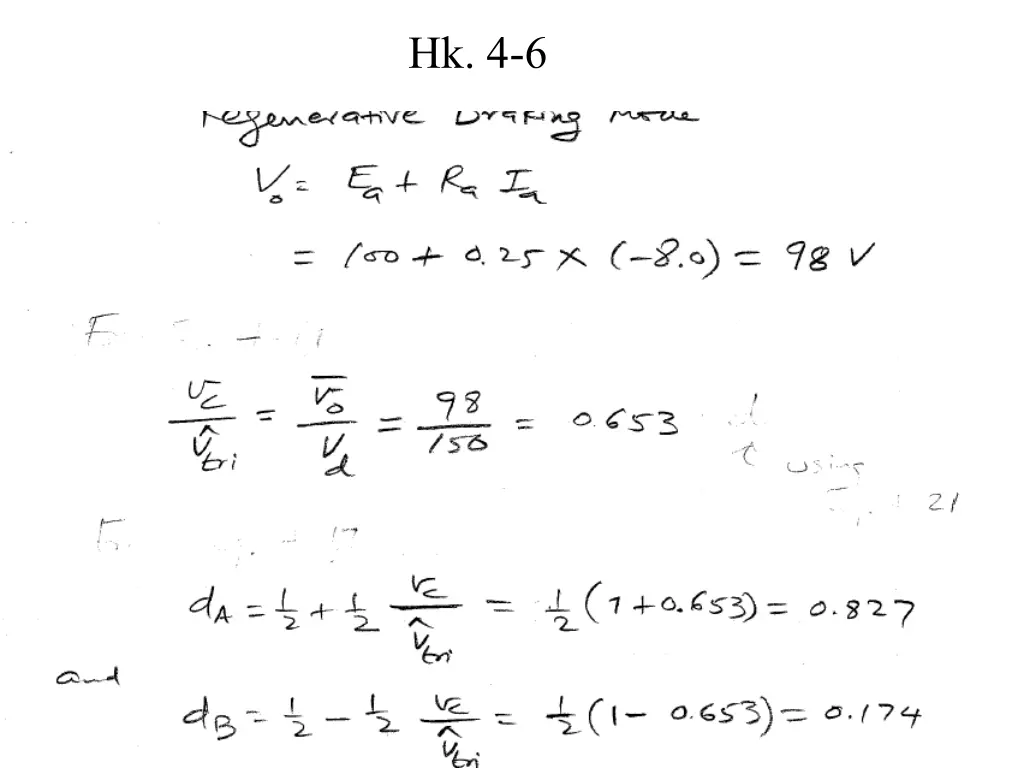 Hk. 4-6
regenerative braking mode
V₀ = Eₐ + Rₐ Iₐ
= 100 + 0.25 × (-8.0) = 98 V
v_c / V̂_tri = V̅₀ / V_d = 98 / 150 = 0.653
using
21
17
d_A = 1/2 + 1/2 v_c / V̂_tri = 1/2 (1 + 0.653) = 0.827
and
d_B = 1/2 - 1/2 v_c / V̂_tri = 1/2 (1 - 0.653) = 0.174